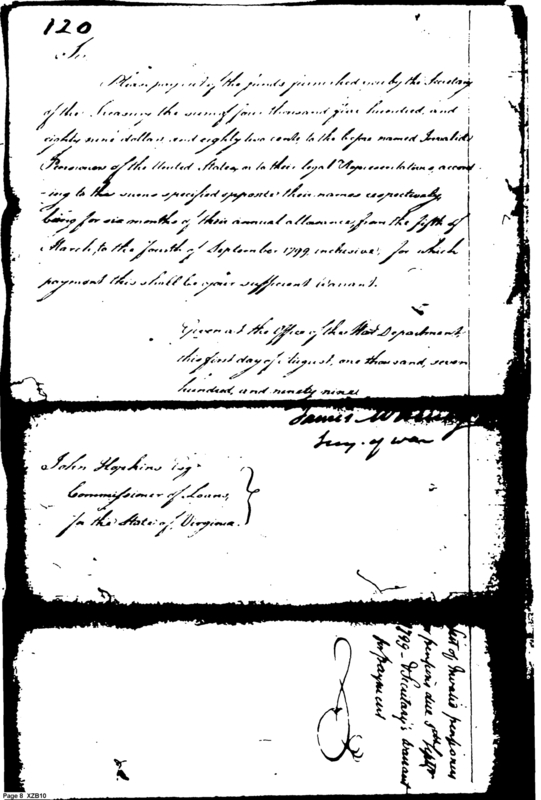 120
Sir
Please pay out of the funds furnished you by the Secretary
of the Treasury the sum of four thousand five hundred, and
eighty nine dollars and eighty two cents, to the before named Invalid
Pensioners of the United States, or to their legal Representatives, accord-
-ing to the sums specified opposite their names respectively,
being for six months of their annual allowance, from the fifth of
March, to the fourth of September 1799 inclusive: for which
payment this shall be your sufficient warrant.
Given at the Office of the War Department,
this first day of August, one thousand, seven
hundred, and ninety nine
James McHenry
Secy. of War
John Hopkins Esqr
Commissioner of Loans,
for the State of Virginia.
List of Invalid pensioners
pensions due 5th Septr
1799 - & Secretary's warrant
for payment
Page 8 XZB10